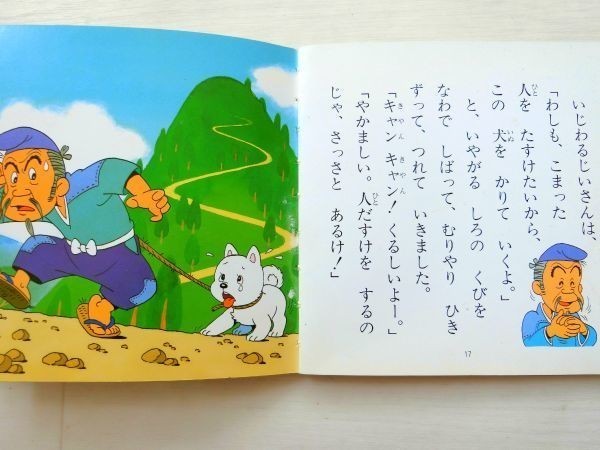 いじわるじいさんは、
「わしも、こまった
人を たすけたいから、
この 犬を かりて いくよ。」
と、いやがる しろの くびを
なわで しばって、むりやり ひき
ずって、つれて いきました。
「キャン キャン! くるしいよー。」
「やかましい。人だすけを するの
じゃ、さっさと あるけ!」
17